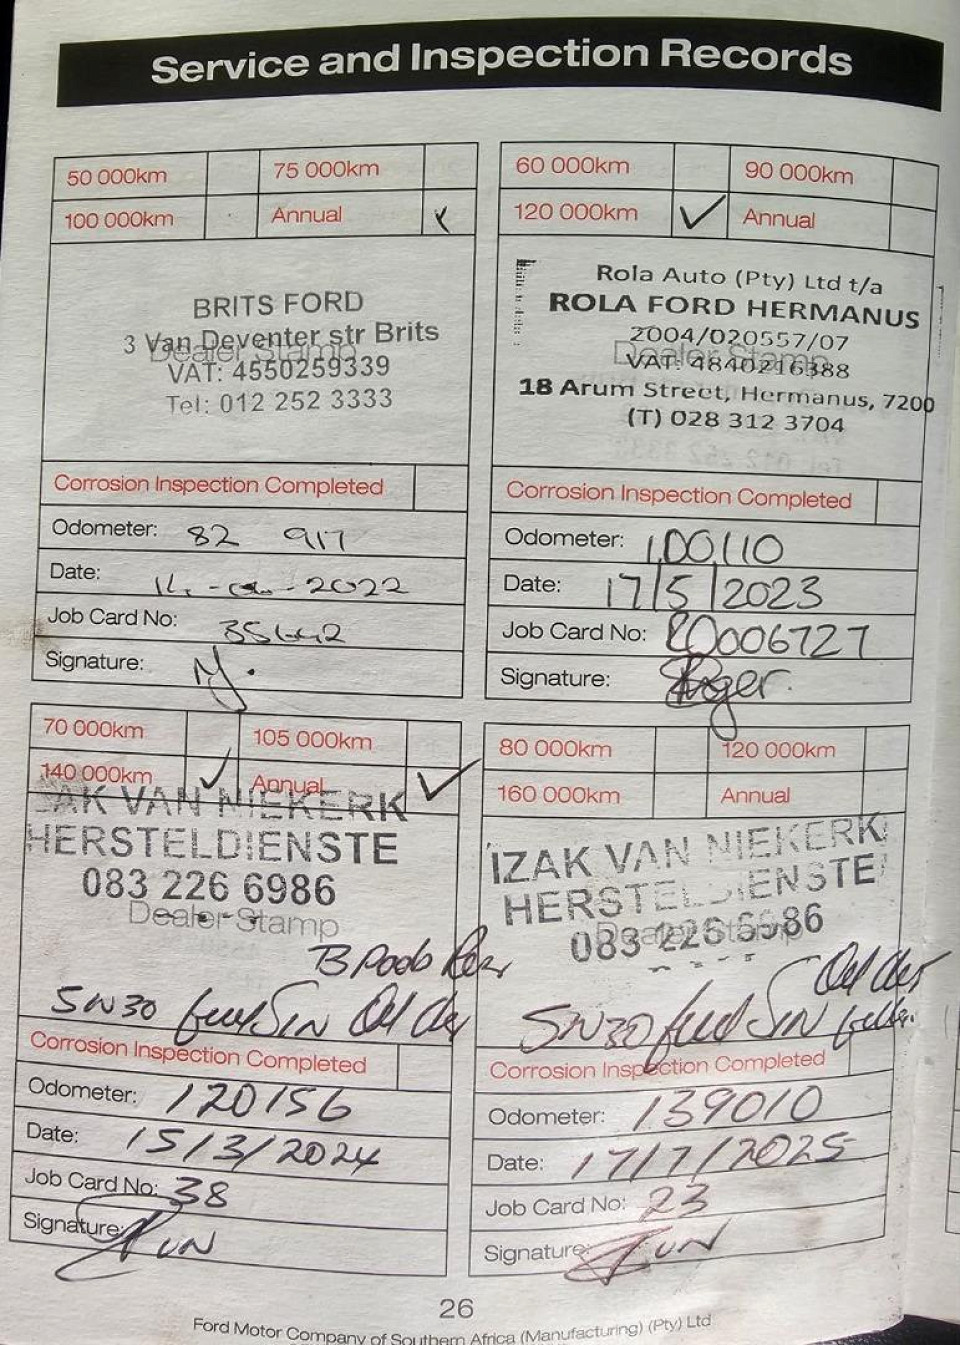 Service and Inspection Records
50 000km
75 000km
100 000km
Annual
BRITS FORD
3 Van Deventer str Brits
Dealer Stamp
VAT: 4550259339
Tel: 012 252 3333
Corrosion Inspection Completed
Odometer: 82 917
Date: 14-06-2022
Job Card No: 35642
Signature:
60 000km
90 000km
120 000km
Annual
Rola Auto (Pty) Ltd t/a
ROLA FORD HERMANUS
2004/020557/07
Dealer Stamp
VAT: 4840216388
18 Arum Street, Hermanus, 7200
(T) 028 312 3704
Corrosion Inspection Completed
Odometer: 100110
Date: 17/5/2023
Job Card No: RO006727
Signature:
70 000km
105 000km
140 000km
Annual
ZAK VAN NIEKERK
HERSTELDIENSTE
083 226 6986
Dealer Stamp
SN30 fuel SIN
Corrosion Inspection Completed
Odometer: 120156
Date: 15/3/2024
Job Card No: 38
Signature:
80 000km
120 000km
160 000km
Annual
IZAK VAN NIEKERK
HERSTELDIENSTE
083 226 6986
Dealer Stamp
SN30 fuel SIN
Corrosion Inspection Completed
Odometer: 139010
Date: 17/7/2025
Job Card No: 23
Signature:
26
Ford Motor Company of Southern Africa (Manufacturing) (Pty) Ltd